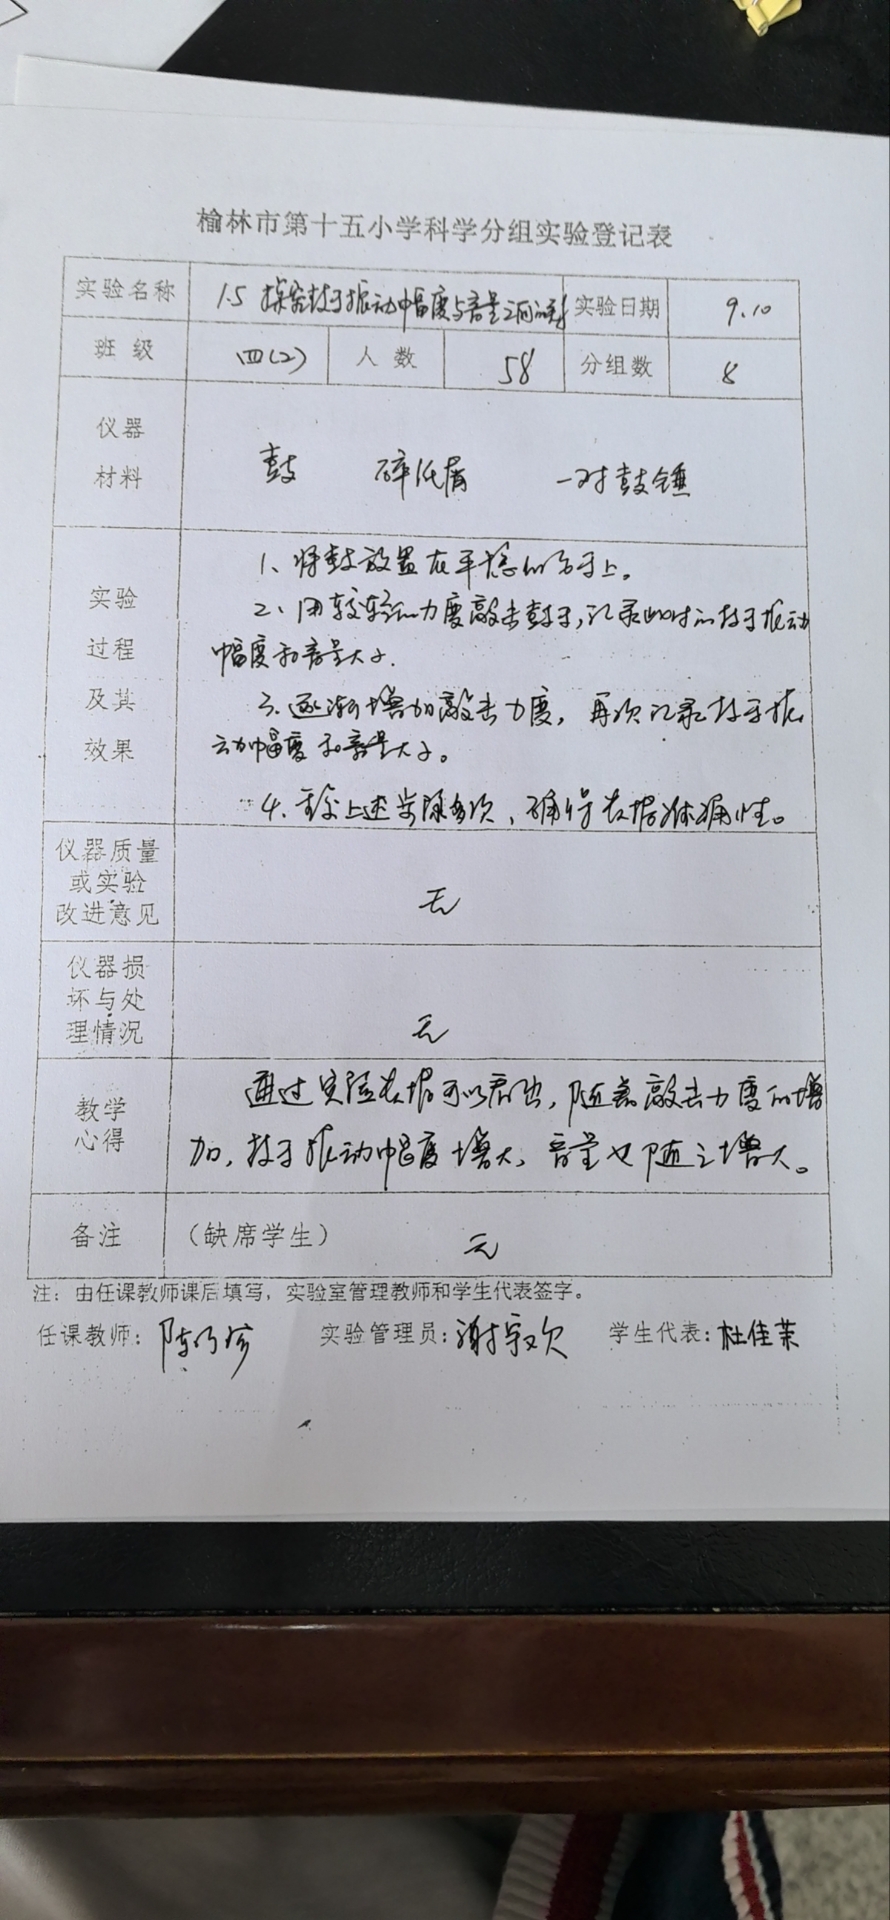 榆林市第十五小学科学分组实验登记表
实验名称 1.5 探究鼓子振动幅度与音量之间的关系 实验日期 9.10
班级 四(2) 人数 58 分组数 8
仪器
材料
鼓 碎纸屑 一对鼓锤
实验
过程
及其
效果
1、将鼓放置在平稳的台子上。
2、用较轻的力度敲击鼓子,记录此时的鼓子振动
幅度和音量大小.
3、逐渐增加敲击力度,再次记录鼓子振
动幅度和音量大小。
4、重复上述步骤多次,确保数据准确性。
仪器质量
或实验
改进意见
无
仪器损
坏与处
理情况
无
教学
心得
通过实验数据可以看出,随着敲击力度的增
加,鼓子振动幅度增大,音量也随之增大。
备注 (缺席学生) 无
注:由任课教师课后填写,实验室管理教师和学生代表签字。
任课教师: 实验管理员: 学生代表:杜佳茉